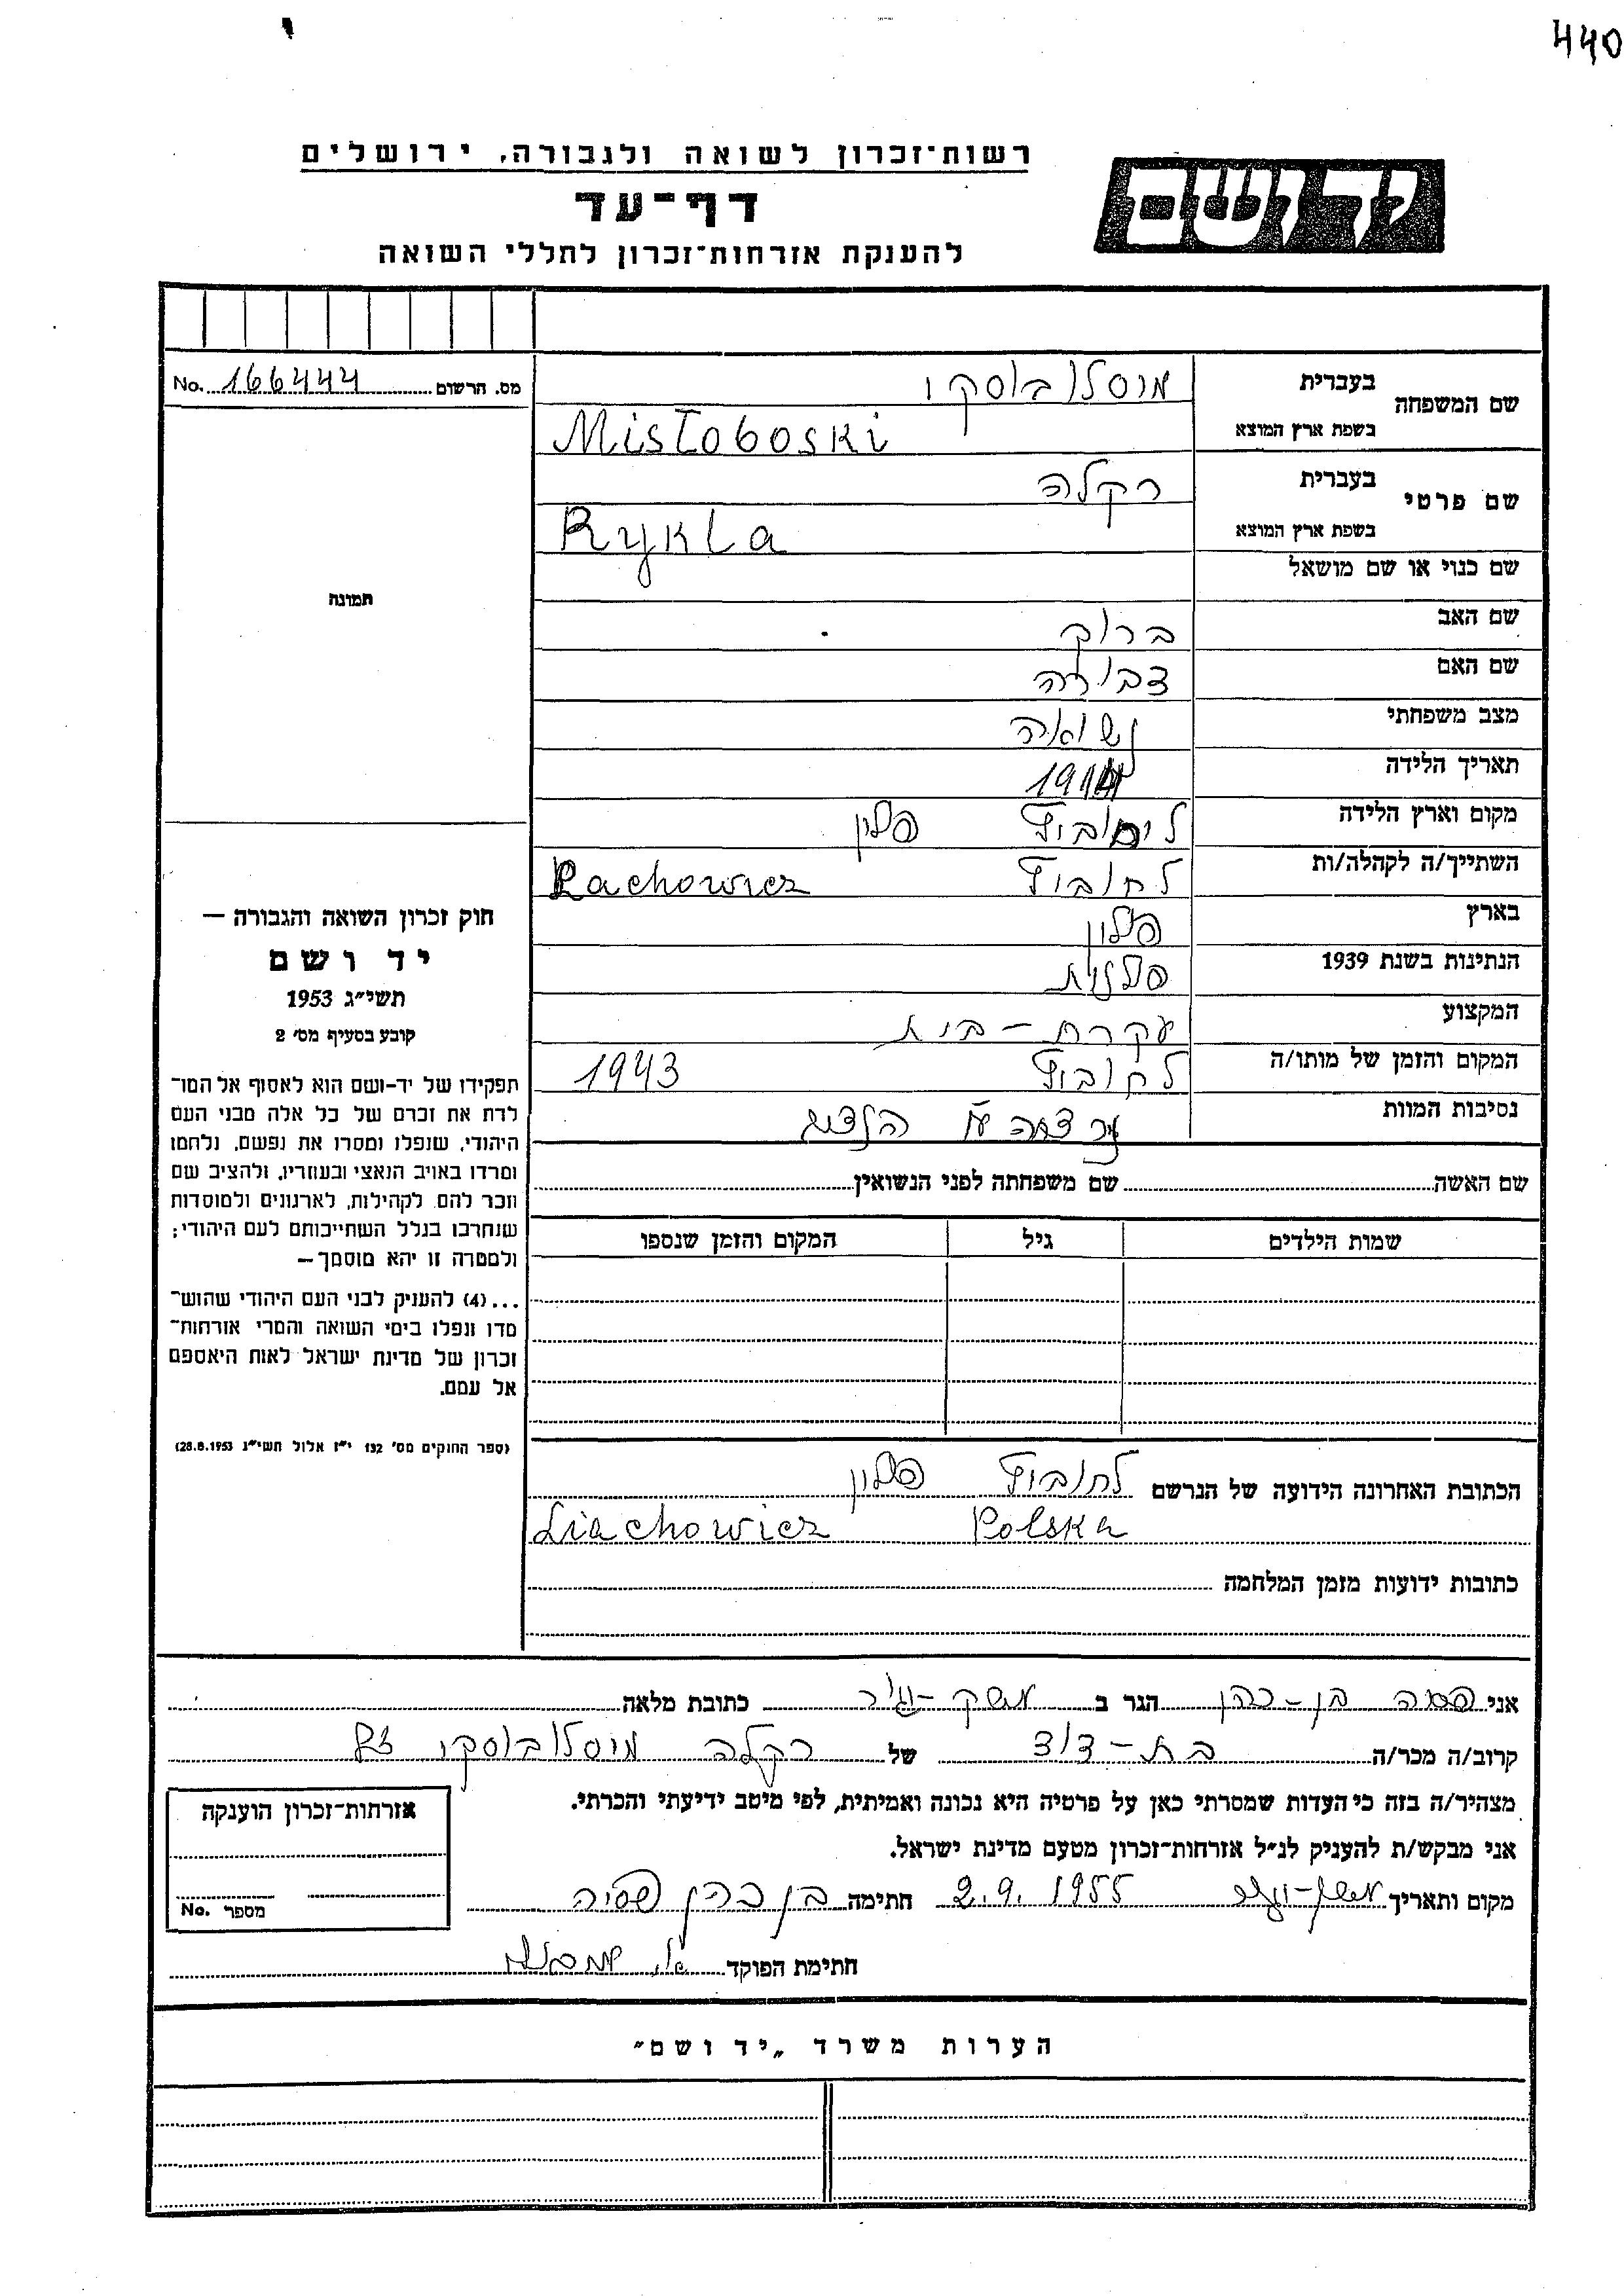 440
רשות־זכרון לשואה ולגבורה, ירושלים
יד ושם
דף־עד
להענקת אזרחות־זכרון לחללי השואה
מס. הרשום 166444 No.
שם המשפחה
בעברית מיסלובוסקי
בשפת ארץ המוצא Misłoboski
שם פרטי
בעברית רקלה
בשפת ארץ המוצא Rykla
שם כנוי או שם מושאל
תמונה
שם האב ברוך
שם האם
מצב משפחתי נשואה
תאריך הלידה
מקום וארץ הלידה פולין
השתייך/ה לקהלה/ות לחוביץ Lachowicz
בארץ פולין
הנתינות בשנת 1939 פולנית
המקצוע עקרת - בית
המקום והזמן של מותו/ה לחוביץ 1943
נסיבות המוות
חוק זכרון השואה והגבורה —
יד ושם
תשי״ג 1953
קובע בסעיף מס׳ 2
תפקידו של יד-ושם הוא לאסוף אל המו־
לדת את זכרם של כל אלה מבני העם
היהודי, שנפלו ומסרו את נפשם, נלחמו
ומרדו באויב הנאצי ובעוזריו, ולהציב שם
וזכר להם, לקהילות, לארגונים ולמוסדות
שנחרבו בגלל השתייכותם לעם היהודי;
ולמטרה זו יהא מוסמך—
...(4) להעניק לבני העם היהודי שהוש־
מדו ונפלו בימי השואה והמרי אזרחות־
זכרון של מדינת ישראל לאות היאספם
אל עמם.
(ספר החוקים מס׳ 132 י״ז אלול תשי״ג 28.8.1953)
שם האשה שם משפחתה לפני הנשואין
שמות הילדים גיל המקום והזמן שנספו
הכתובת האחרונה הידועה של הנרשם לחוביץ פולין
Liachowicz Polska
כתובות ידועות מזמן המלחמה
אני פסיה בן - כהן הגר ב כתובת מלאה
קרוב/ה מכר/ה בת - דוד של רקלה מיסלובוסקי ז״ל
מצהיר/ה בזה כי העדות שמסרתי כאן על פרטיה היא נכונה ואמיתית, לפי מיטב ידיעתי והכרתי.
אני מבקש/ת להעניק לנ״ל אזרחות־זכרון מטעם מדינת ישראל.
מקום ותאריך 2.9.1955 חתימה בן כהן פסיה
חתימת הפוקד
אזרחות־זכרון הוענקה
מספר No.
הערות משרד „יד ושם״